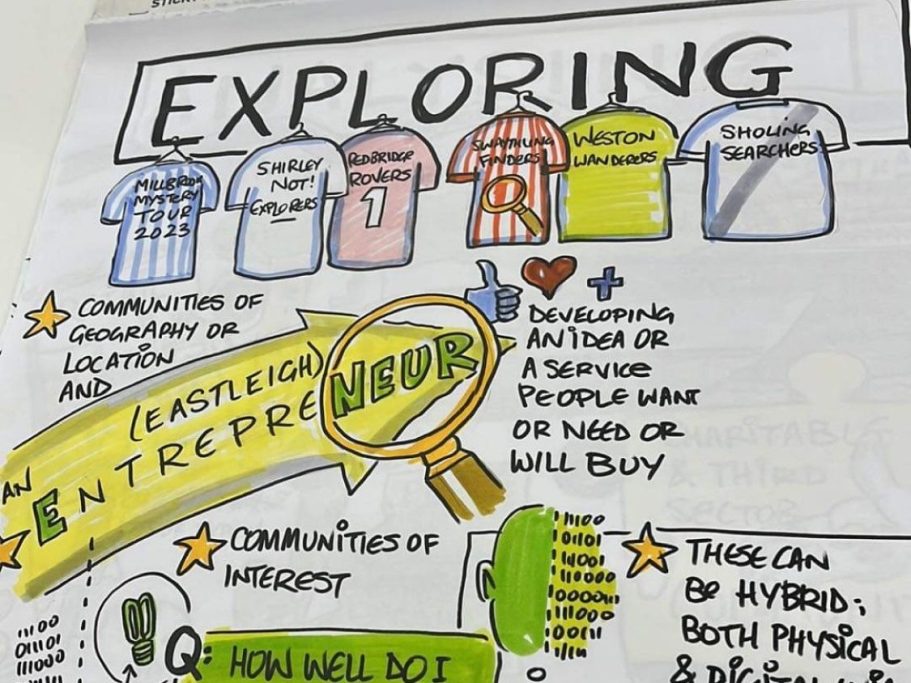 EXPLORING
MILLBROOK
MYSTERY
TOUR
2023
SHIRLEY
NOT!
EXPLORERS
REDBRIDGE
ROVERS
1
SWAYTHLING
FINDERS
WESTON
WANDERERS
SHOLING
SEARCHERS
COMMUNITIES OF
GEOGRAPHY OR
LOCATION
AND
AN
(EASTLEIGH)
ENTREPRENEUR
DEVELOPING
AN IDEA OR
A SERVICE
PEOPLE WANT
OR NEED OR
WILL BUY
CHARITABLE
& THIRD
SECTOR
COMMUNITIES OF
INTEREST
11100
01101
11001
110000
00000
111000
00011
THESE CAN
BE HYBRID;
BOTH PHYSICAL
& DIGITAL
11100
011101
111000
Q: HOW WELL DO I